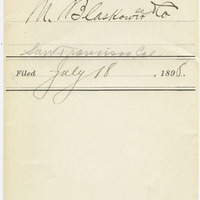 M. Blaskower & Co
San Francisco Cal
Filed July 18, 1898.